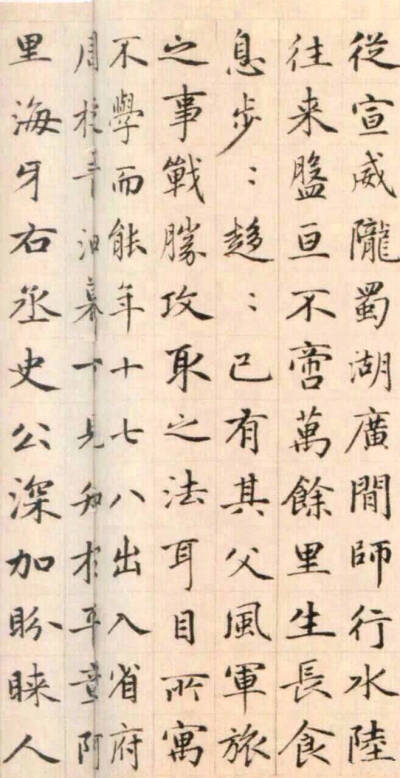 從宣威隴蜀湖廣間師行水陸
往来盤亘不啻萬餘里生長食
息步：趍：已有其父風軍旅
之事戰勝攻取之法耳目所寓
不學而能年十七八出入省府
周幕下見知於平章阿
里海牙右丞史公深加盼睞人